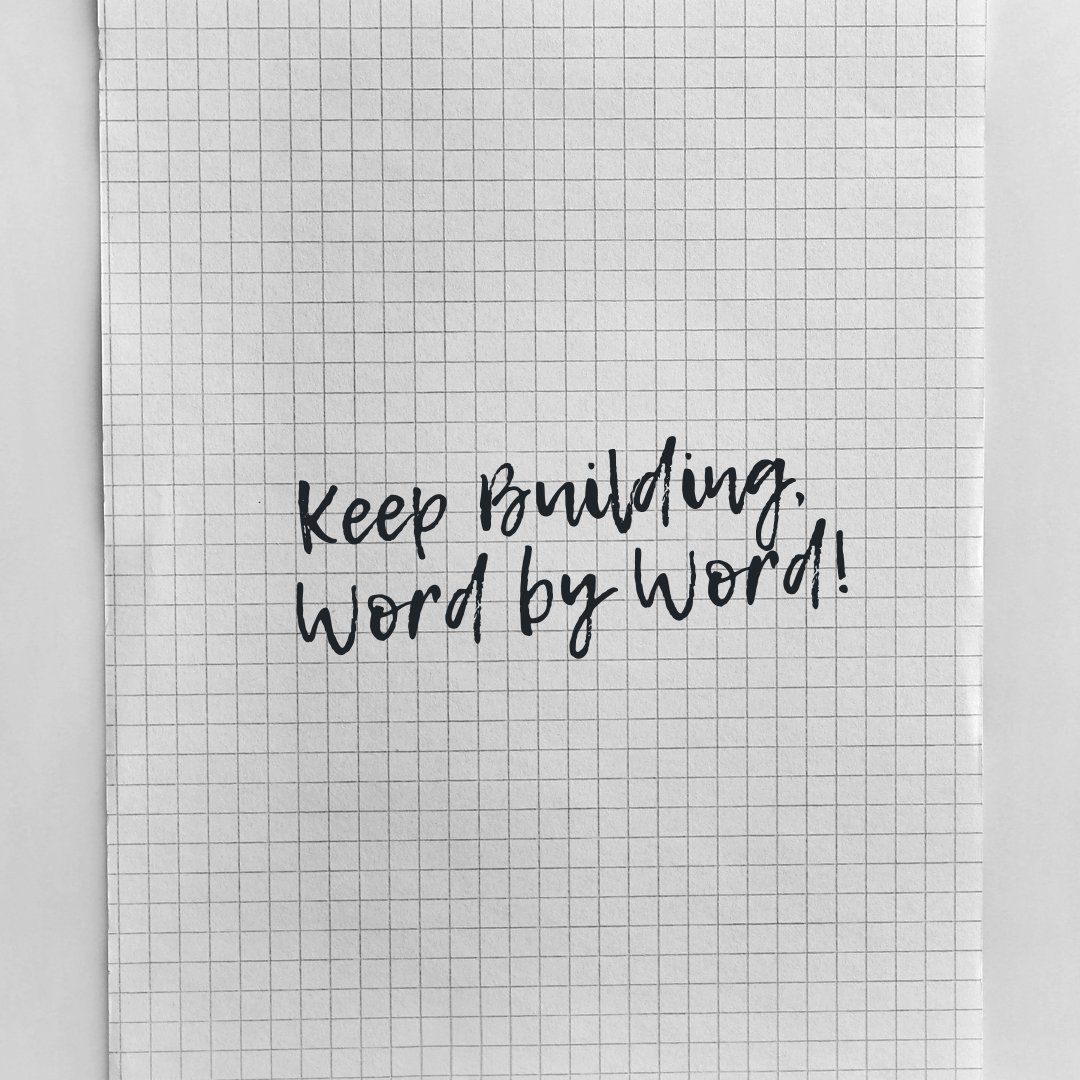 Keep Building,
Word by Word!